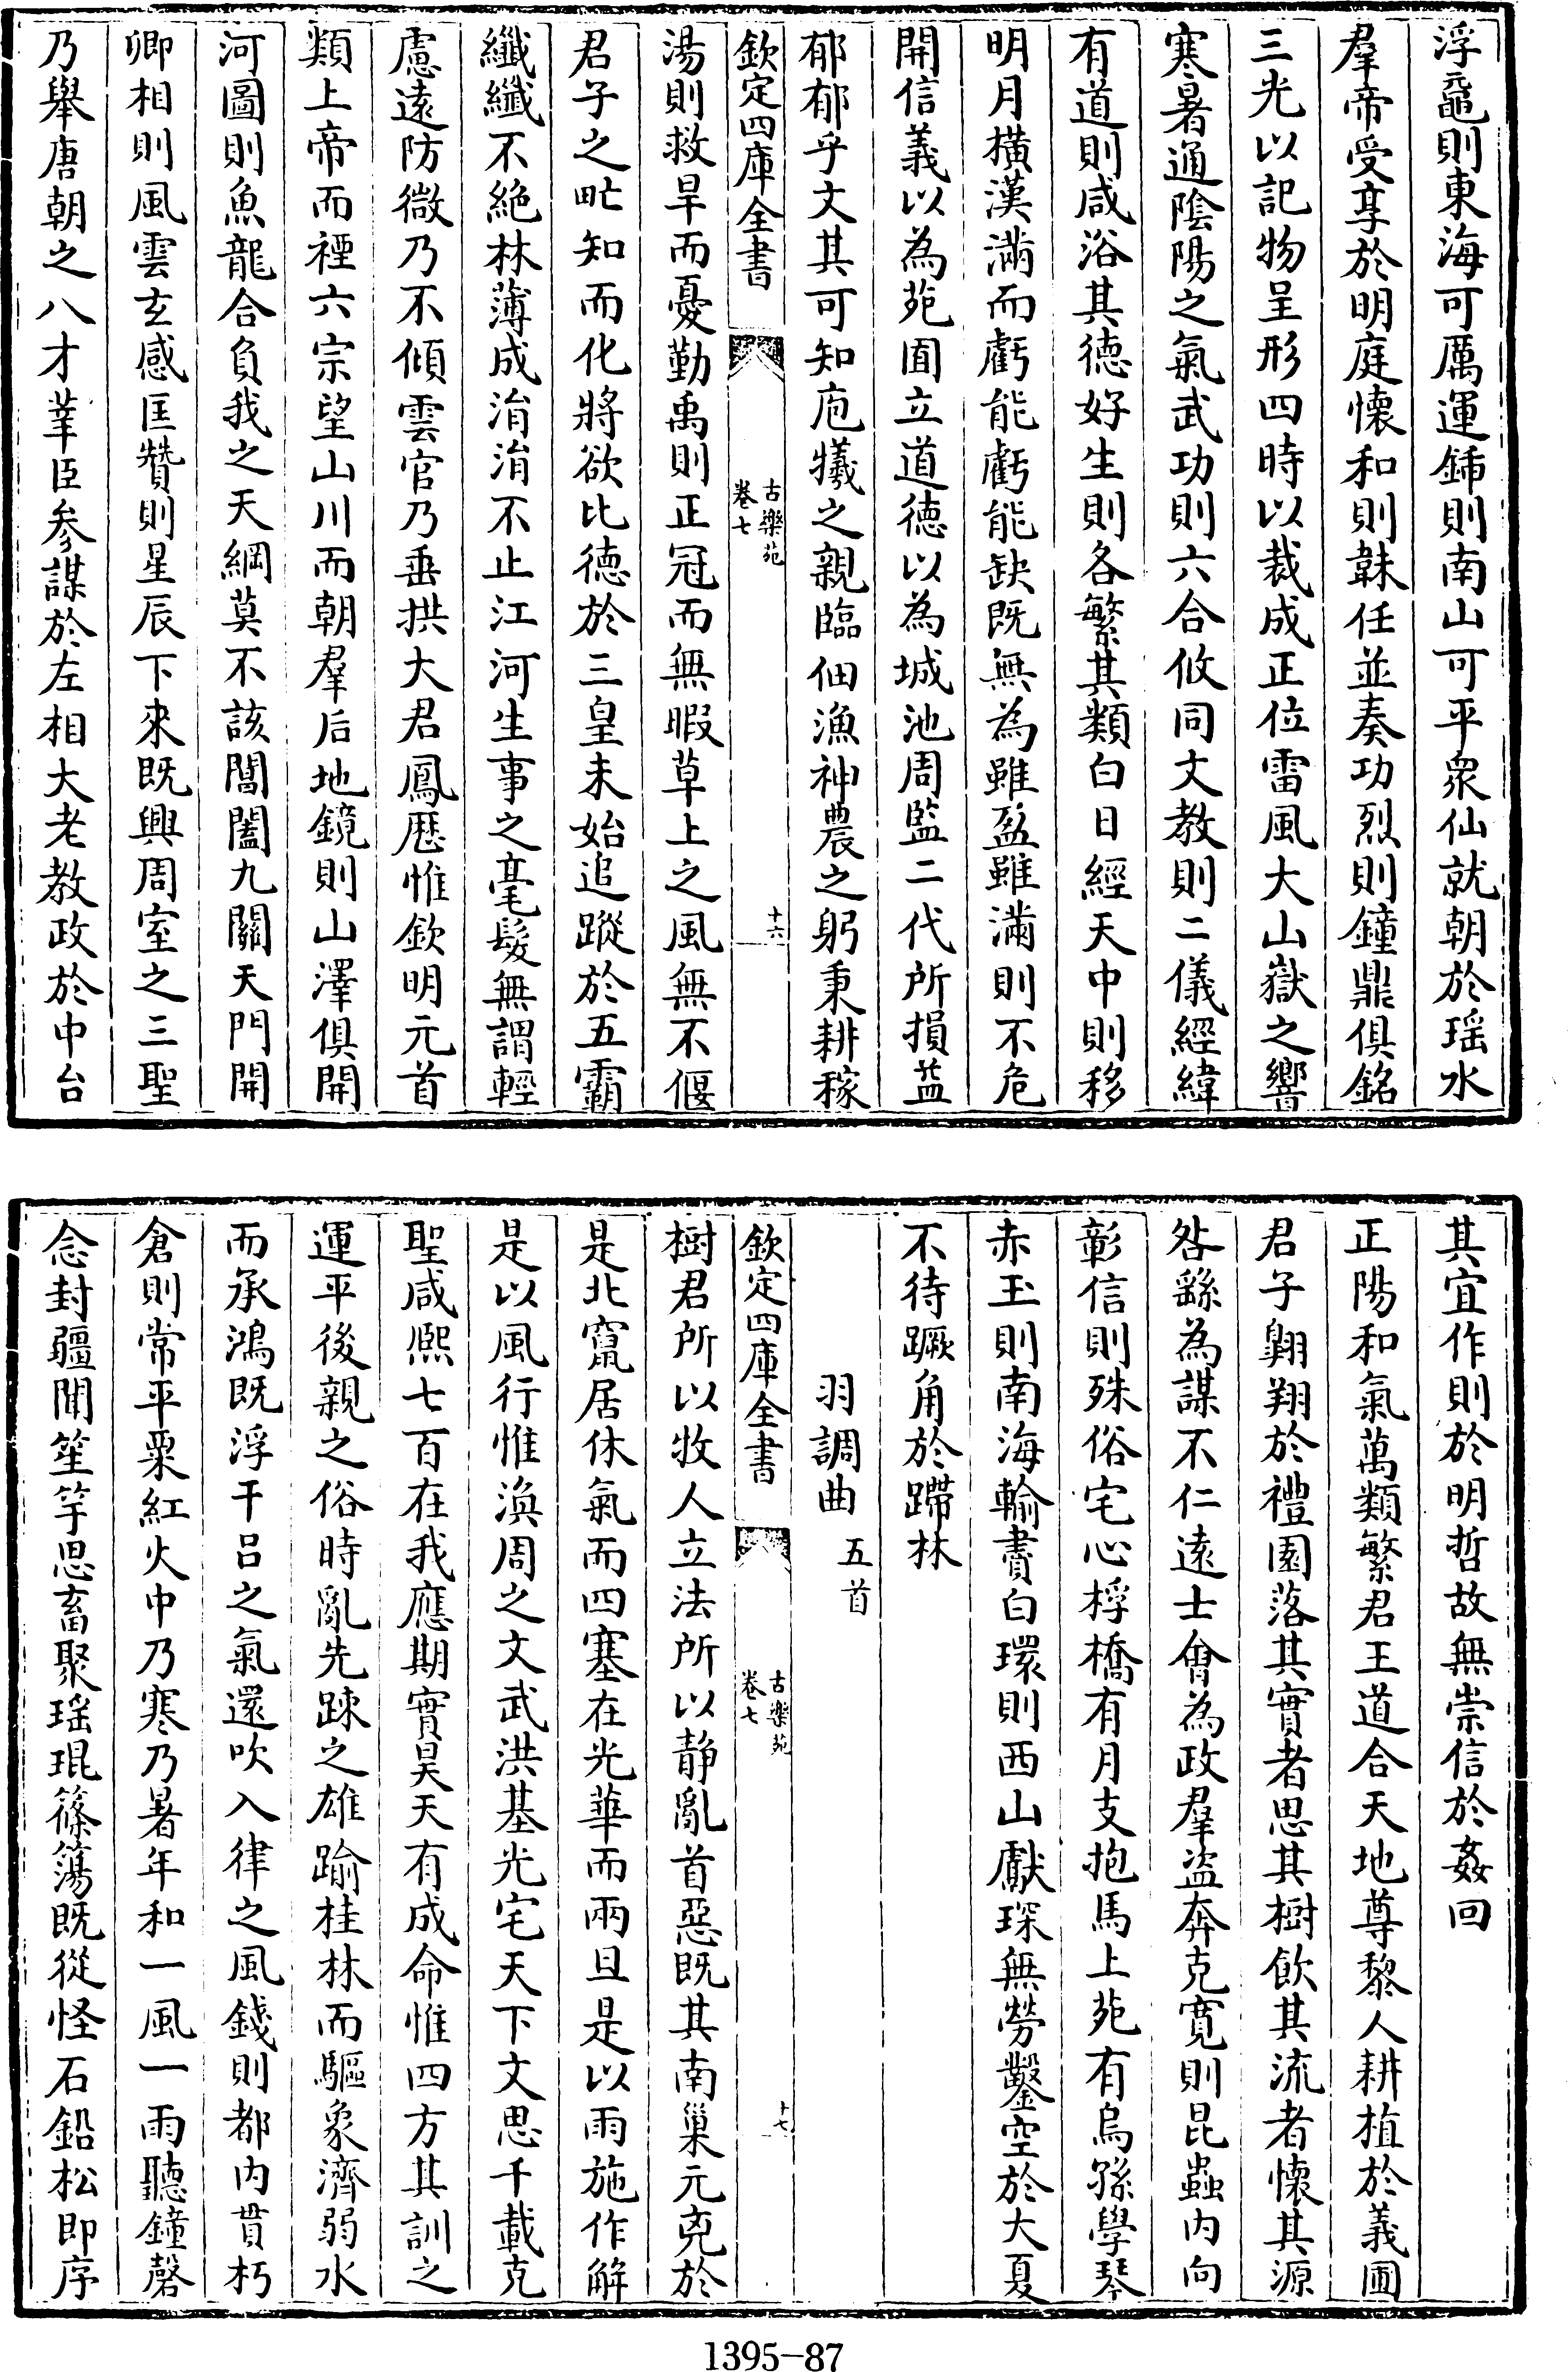 浮黿則東海可厲運鍤則南山可平衆仙就朝於瑶水
羣帝受享於明庭懷和則韎任並奏功烈則鐘鼎俱銘
三光以記物呈形四時以裁成正位雷風大山嶽之響
寒暑通陰陽之氣武功則六合攸同文教則二儀經緯
有道則咸浴其德好生則各繁其類白日經天中則移
明月横漢滿而虧能虧能缺既無為雖盈雖滿則不危
開信義以為苑囿立道德以為城池周監二代所損益
郁郁乎文其可知庖犧之親臨佃漁神農之躬秉耕稼
欽定四庫全書
古樂苑
卷七
十六
湯則救旱而憂勤禹則正冠而無暇草上之風無不偃
君子之甿知而化將欲比德於三皇未始追蹤於五霸
纖纖不絶林薄成涓涓不止江河生事之毫髮無謂輕
慮遠防微乃不傾雲官乃垂拱大君鳳厯惟欽明元首
類上帝而禋六宗望山川而朝羣后地鏡則山澤俱開
河圖則魚龍合負我之天綱莫不該闔闔九關天門開
卿相則風雲玄感匡贊則星辰下來既興周室之三聖
乃舉唐朝之八才莘臣參謀於左相大老教政於中台
其宜作則於明哲故無崇信於姦回
正陽和氣萬類繁君王道合天地尊黎人耕植於義圃
君子翺翔於禮園落其實者思其樹飲其流者懷其源
咎繇為謀不仁遠士會為政羣盜奔克寛則昆蟲内向
彰信則殊俗宅心桴橋有月支抱馬上苑有烏孫學琴
赤玉則南海輸賮白環則西山獻琛無勞鑿空於大夏
不待蹶角於蹛林
羽調曲 五首
欽定四庫全書
古樂苑
卷七
十七
樹君所以牧人立法所以静亂首惡既其南巢元兇於
是北竄居休氣而四塞在光華而兩旦是以雨施作解
是以風行惟渙周之文武洪基光宅天下文思千載克
聖咸熙七百在我應期實昊天有成命惟四方其訓之
運平後親之俗時亂先踈之雄踰桂林而驅象濟弱水
而承鴻既浮干吕之氣還吹入律之風錢則都内貫朽
倉則常平粟紅火中乃寒乃暑年和一風一雨聽鐘磬
念封疆聞笙竽思畜聚瑶琨篠簜既從怪石鉛松即序
1395-87